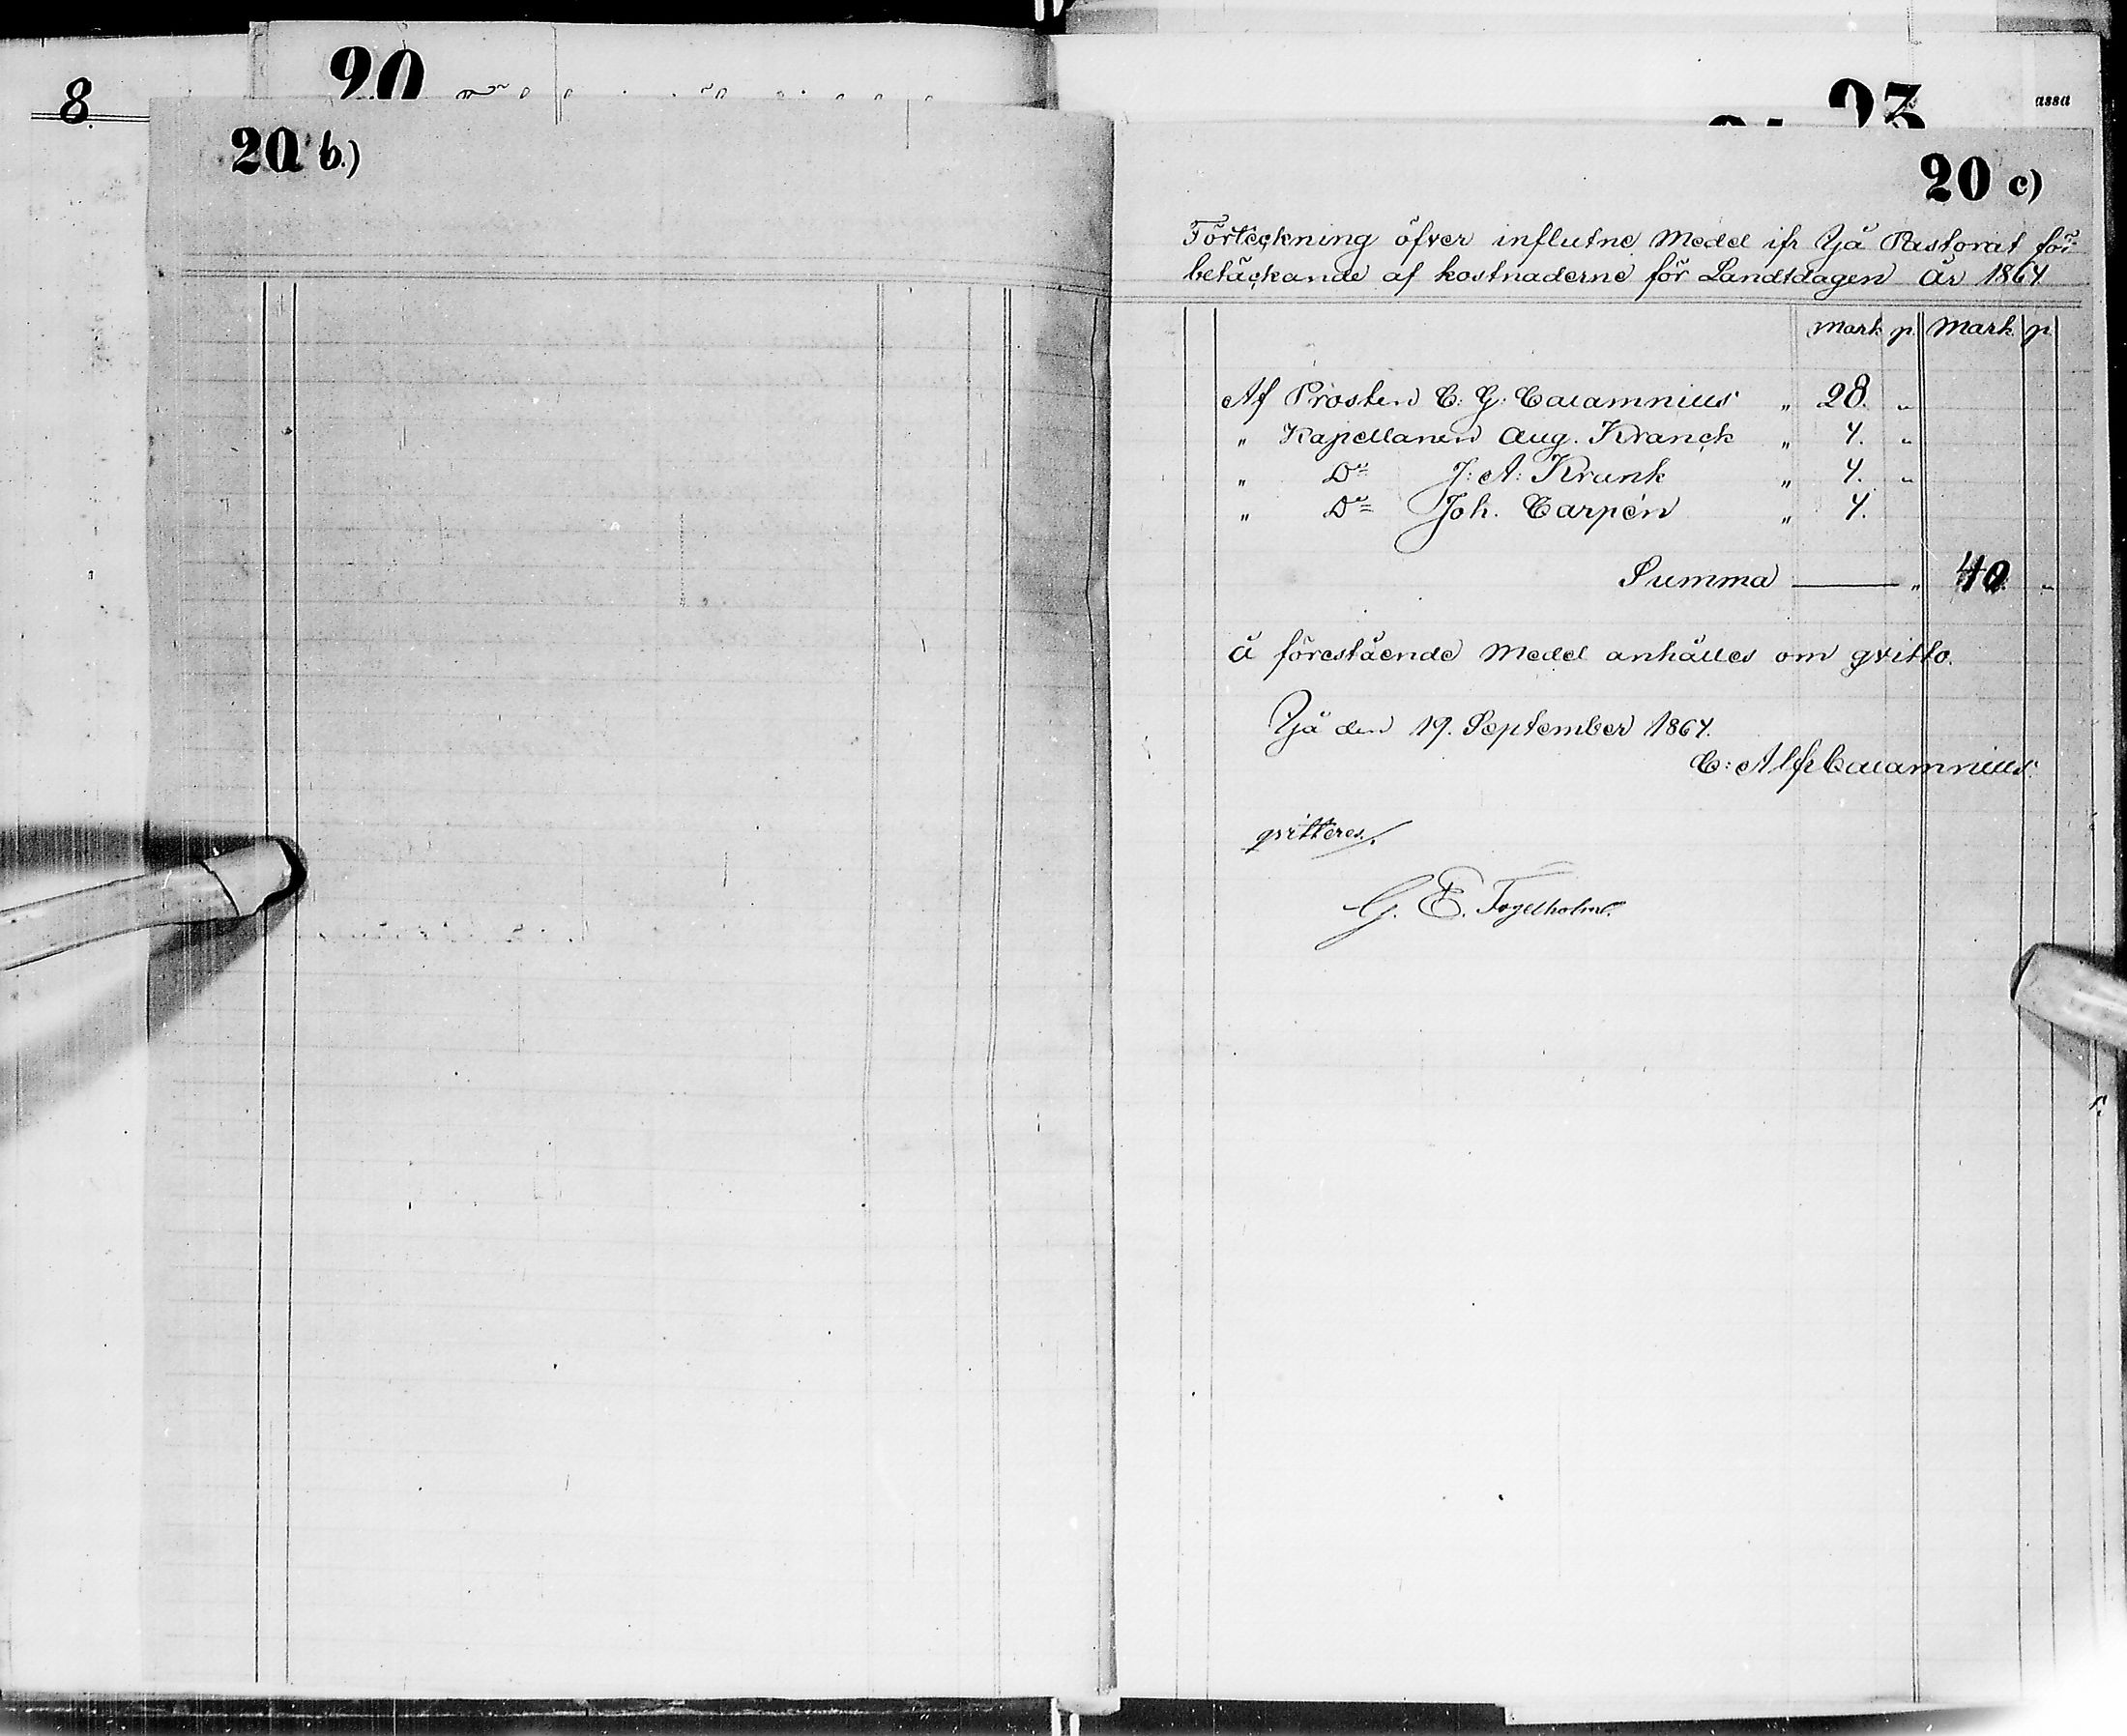 8.
20
20 b.)
23
assa
20 c)
Förteckning öfver influtne Medel ifr Ijå Pastorat för
betäckande af kostnaderne för Landtdagen år 1864
mark p. mark p.
Af Prosten C. G. Calamnius „ 28. „
„ Kapellanen Aug. Kranck „ 4. „
„ Do J. A. Krank „ 4. „
„ Do Joh. Carpén „ 4.
Summa — „ 40 „
å förestående Medel anhålles om qvitto.
Ijå den 19. September 1864.
C: Alfr Calamnius.
qvitteres.
G. E. Fogelholm.